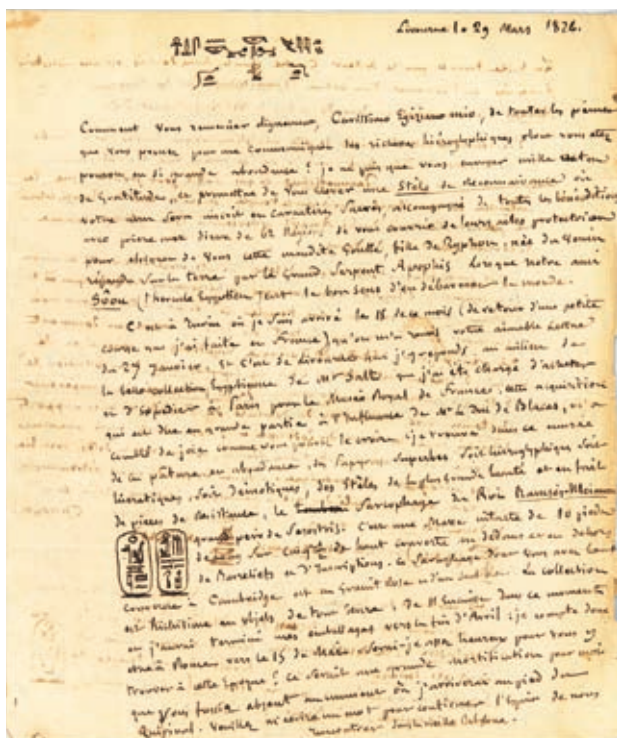 Livourne le 29 Mars 1826.
Comment vous remercier dignement, Carissimo Egiziano mio, de toutes les peines
que vous prenez pour me communiquer des richesses hiéroglyphiques dont vous
en si grande abondance ! je ne puis que vous envoyer mille
de gratitude, et promettre de vous élever une Stèle de reconnaissance où
votre nom sera inscrit en caractères Sacrés, accompagné de toutes les bénédictions
avec prière aux dieux de vous couvrir de leurs ailes protectrices
pour éloigner de vous cette maudite Goutte, fille de Typhon, née du venin
répandu sur la terre par le Grand Serpent Apophis lorsque notre ami
(l'hercule Egyptien) eut le bon sens d'en débarrasser le monde.
C'est à Turin où je suis arrivé le 15 de ce mois (de retour d'une petite
course que j'ai faite en France) qu'on m'a remis votre aimable lettre
du 27 Janvier, et c'est de Livourne que j'y réponds au milieu de
la belle collection Egyptienne de Mr Salt que j'ai été chargé d'acheter
et d'expédier à Paris pour le Musée Royal de France. cette acquisition
qui est due en grande partie à l'influence de Mr le Duc de Blacas, m'a
comblé de joie comme vous le croire. je trouve dans ce musée
de la pâture en abondance, des papyrus superbes soit hiéroglyphiques soit
hiératiques, soit démotiques, des Stèles de la plus grande beauté et en fait
de pièces de résistance, le Sarcophage du Roi Ramsès-Meiamoun
grand père de Sésostris. C'est une masse de 10 pieds
de long sur de haut couverte en dedans et en dehors
de Basreliefs et d'Inscriptions. Ce Sarcophage dont vous avez
couvercle à Cambridge est en granit Rose La collection
est Richissime en objets de tout genre : dans ce moment
et j'aurai terminé mes emballages vers la fin d'Avril : je compte donc
être à Rome vers le 15 de Mai. Serai-je assez heureux pour vous y
trouver à cette Epoque ? Ce serait une grande mortification pour moi
que vous fussiez absent au moment où j'arriverai au pied du
Quirinal. Veuillez m'écrire un mot pour l'espoir de nous
rencontrer